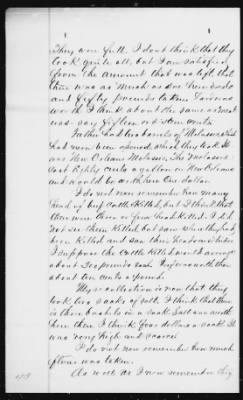 They were full. I dont think that they
took quite all, but I am satisfied
from the amount that was left that
there was as much as one hundred
and fifty pounds taken. Lard was
worth I think about the same as meat
was say fifteen or 16 cents
Father had two barrels of Molasses that
had never been opened when they took it
was New Orleans Molasses. The molasses
cost Eighty cents a gallon in New Orleans
and would be worth here One dollar
I do not now remember how many
head of beef cattle killed, but I think that
there were three or four head killed. I did
not see them killed but saw where they had
been killed and saw their heads and hides
I suppose the cattle killed would average
about 200 pounds each. Beef was worth then
about ten cents a pound.
My recollection is now that they
took two sacks of salt. I think that there
is three bushels in a sack. Salt was worth
here then I think four dollars a sack. It
was very high and scarce.
I do not now remember how much
flour was taken.
As well as I now remember they